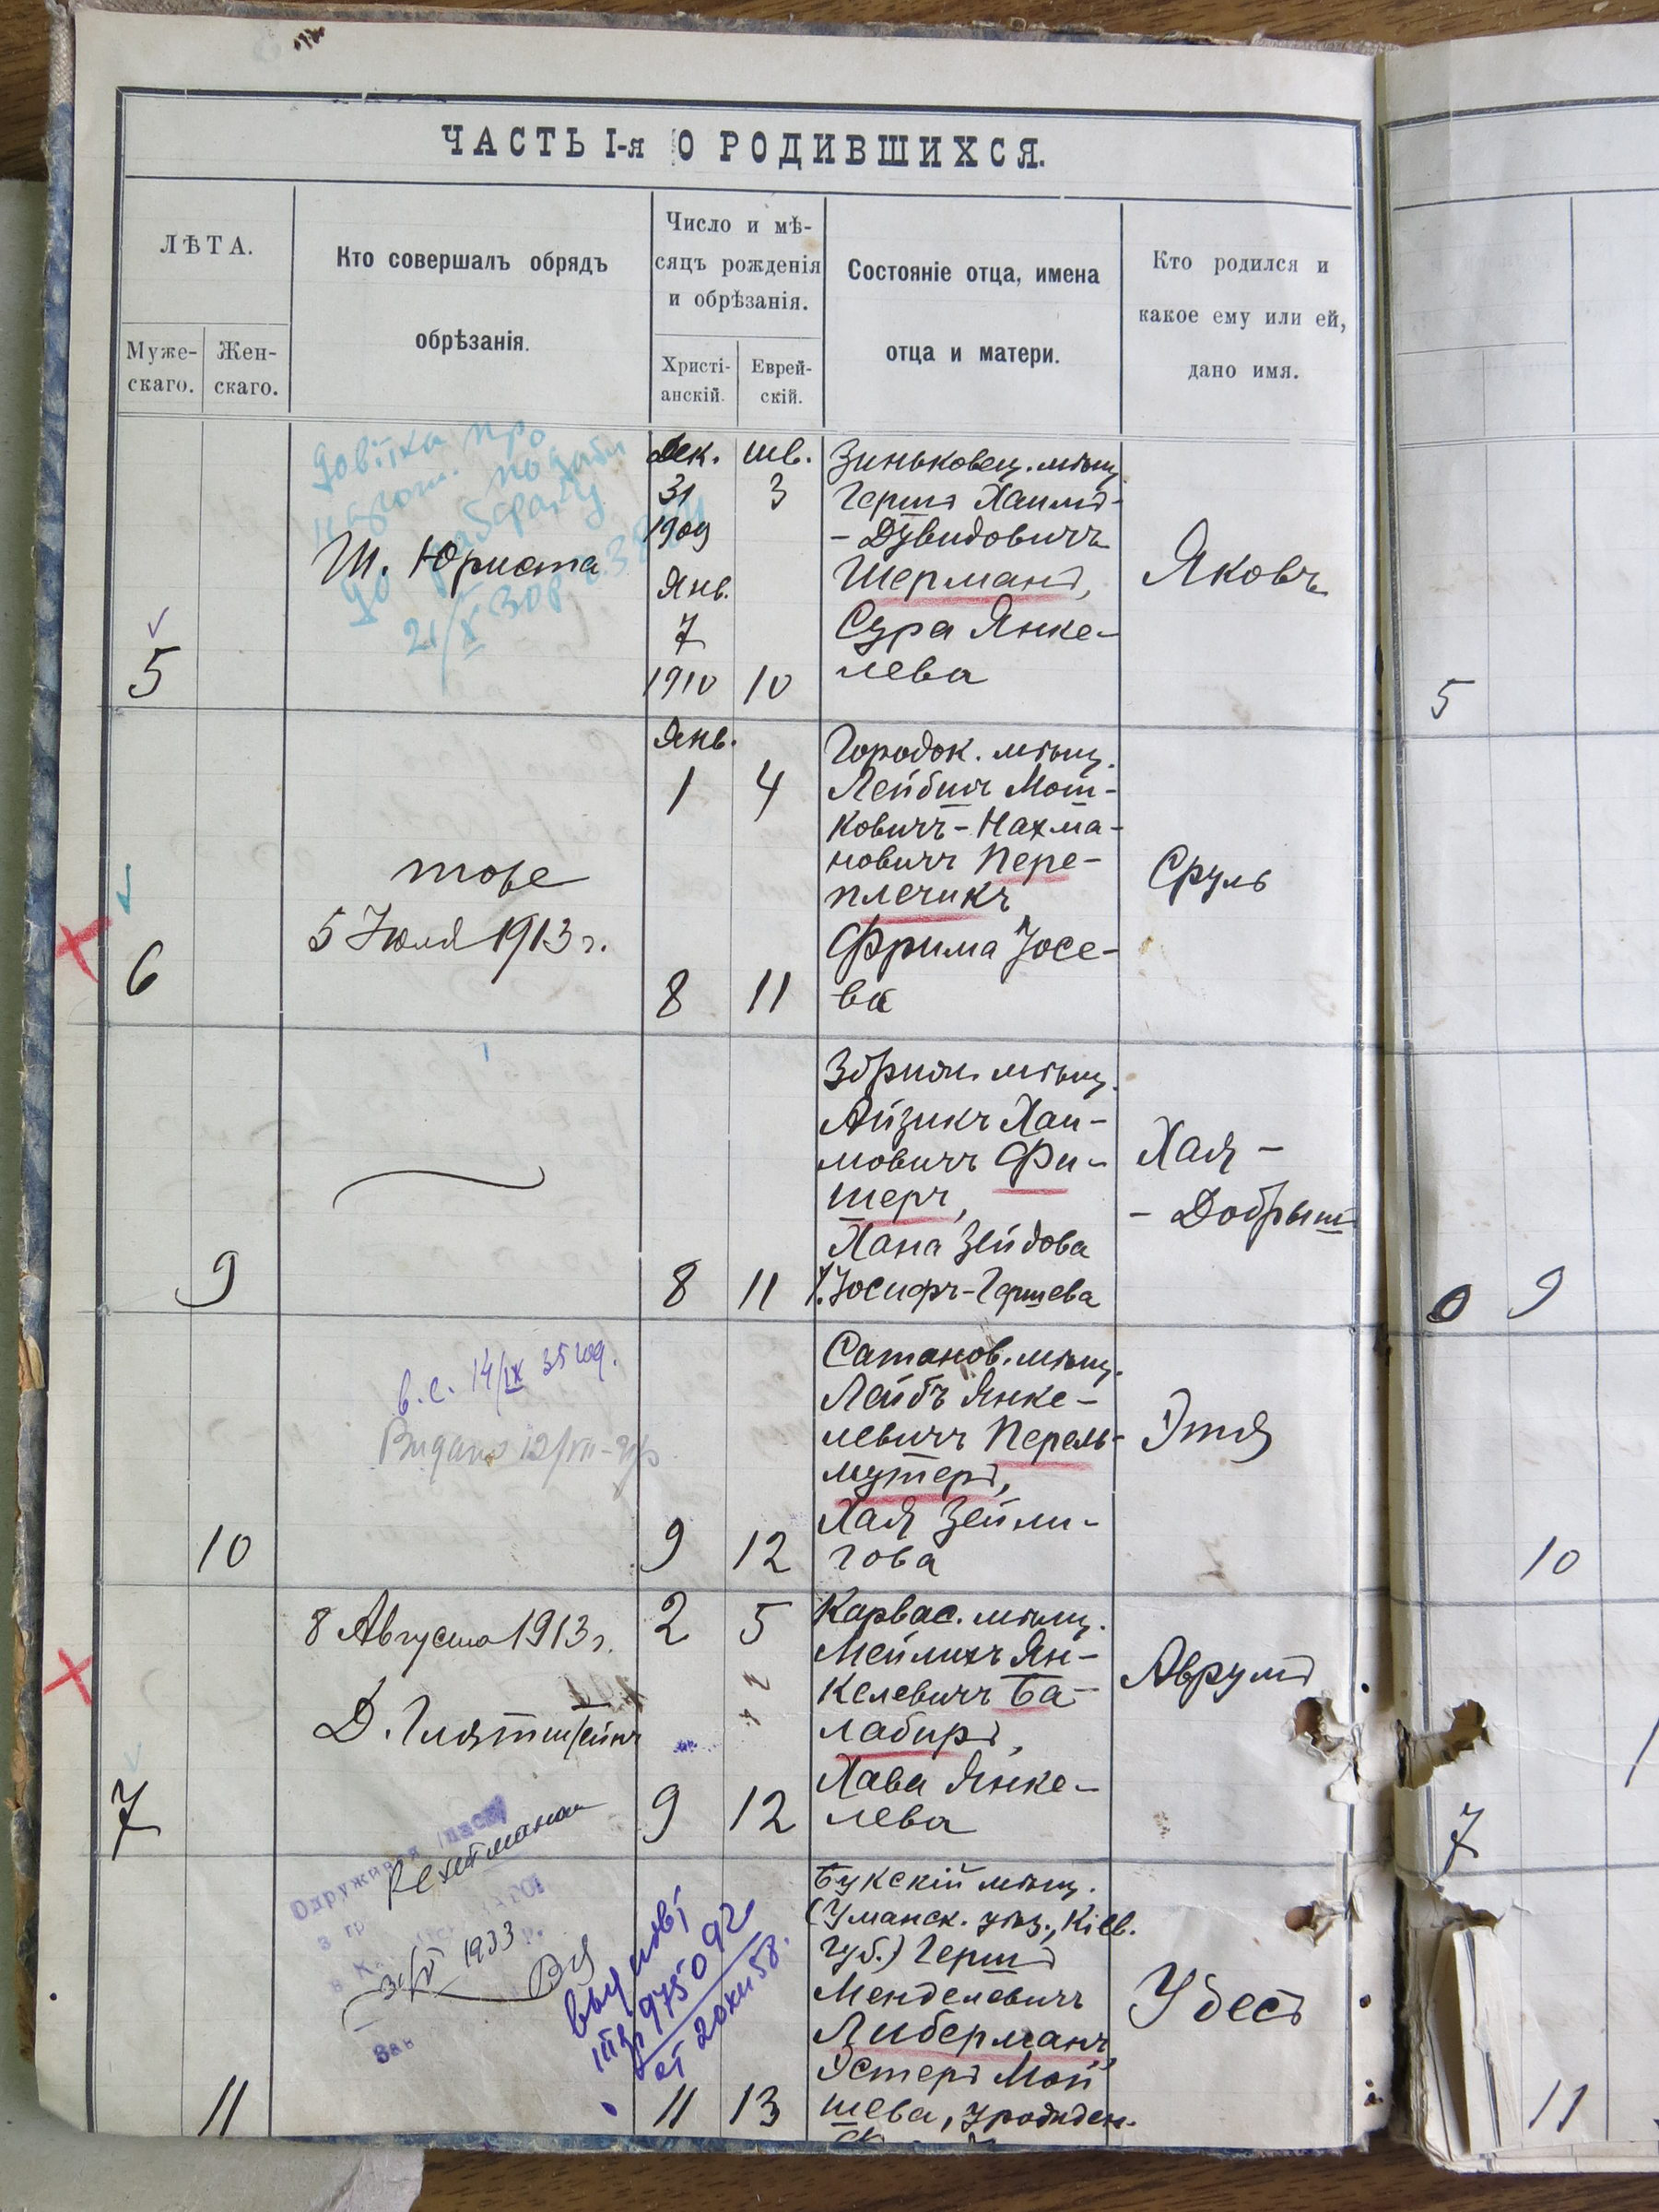 ЧАСТЬ I-я О РОДИВШИХСЯ.
ЛѢТА.
Муже-
скаго.
Жен-
скаго.
Кто совершалъ обрядъ
обрѣзанія.
Число и мѣ-
сяцъ рожденія
и обрѣзанія.
Христі-
анскій.
Еврей-
скій.
Состояніе отца, имена
отца и матери.
Кто родился и
какое ему или ей,
дано имя.
5
довідка про
до
21/X 30р
Ш. Юриста
Дек.
31
1909
Янв.
7
1910
шв.
3
10
Зиньковец. мѣщ.
Гершъ Хаимъ-
- Дувидовичъ
Шерманъ,
Сура Янке-
лева
Яковъ
5
6
тоже
5 Іюля 1913 г.
Янв.
1
8
4
11
Городок. мѣщ.
Лейбишъ Мош-
ковичъ-Нахма-
новичъ Пере-
плечикъ
Фрима Іосе-
ва
Сруль
9
8
11
Збриж. мѣщ.
Айзикъ Хаи-
мовичъ Фи-
шеръ,
Хана Зейдова
Іосифъ-Гершева
Хая -
- Добрыш
9
10
в.с. 14/IX 35 год.
Видано 12/VII-
9
12
Сатанов. мѣщ.
Лейбъ Янке-
левичъ Перель-
мутеръ,
Хая Зейли-
гова
Этя
10
7
8 Августа 1913 г.
Д. Глятштейнъ
2
9
5
12
Карвас. мѣщ.
Мейлихъ Ян-
келевичъ Ба-
лабиръ,
Хава Янке-
лева
Аврумъ
7
11
Одружився
з гр
Рехтманом
1933
975092
11
13
Букскій мѣщ.
(Уманск. уѣз., Кіев.
губ.) Гершъ
Менделевичъ
Либерманъ,
Эстеръ Мой
шева, урожден.
Убесъ
11